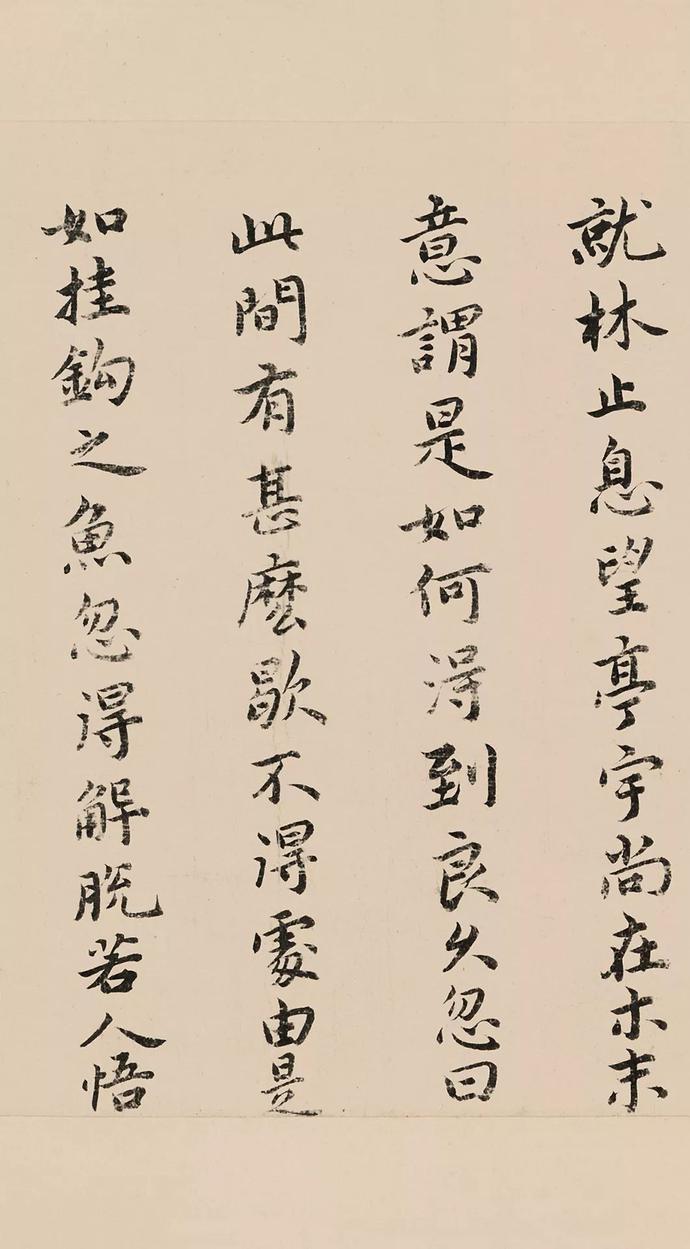 就林止息望亭宇尚在木末
意謂是如何得到良久忽曰
此間有甚麼歇不得處由是
如挂鈎之魚忽得解脫若人悟